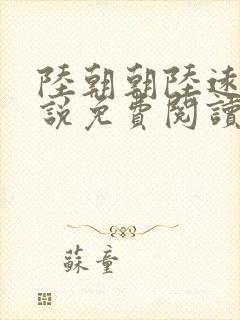 陸朝朝陸遠
説免費閱讀
蘇童